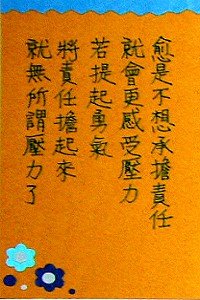 愈是不想承擔責任
就會更感受壓力
若提起勇氣
將責任擔起來
就無所謂壓力了